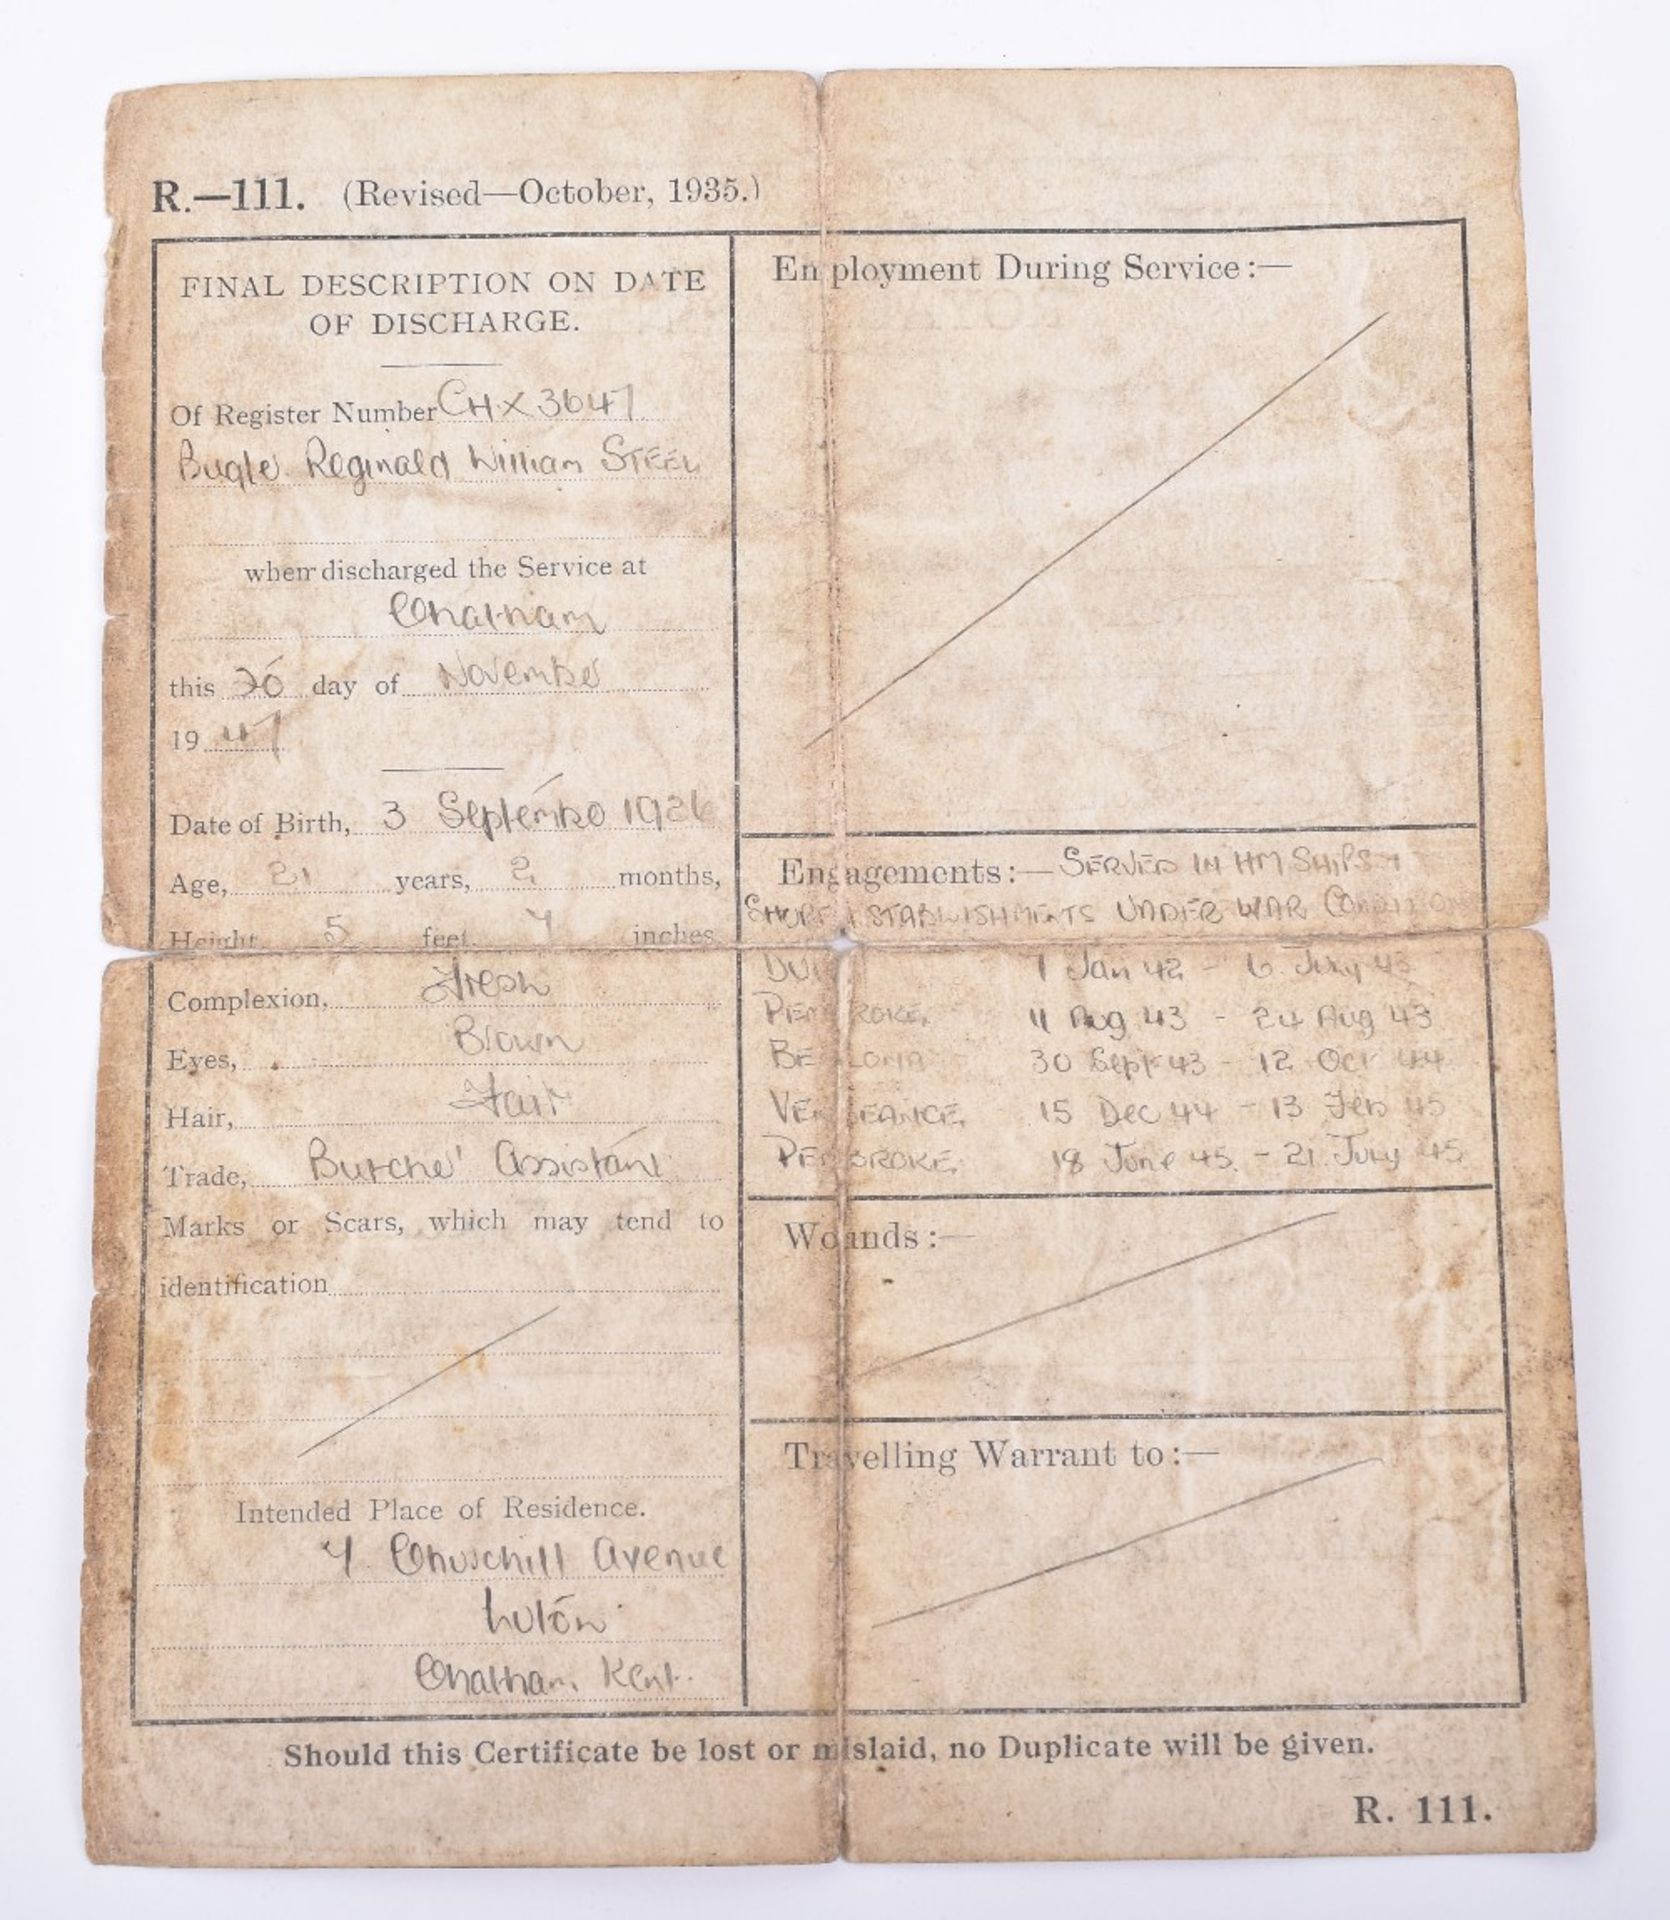 R.—111. (Revised—October, 1935.)
FINAL DESCRIPTION ON DATE
OF DISCHARGE.
Of Register Number CH X 3647
Bugle. Reginald William STEEL
when discharged the Service at
Chatham
this day of November
19 47
Date of Birth, 3 September 1926
Age, 21 years, 2 months,
Height, 5 feet, 7 inches
Complexion, Fresh
Eyes, Brown
Hair, Fair
Trade, Butcher' Assistant
Marks or Scars, which may tend to
identification
Intended Place of Residence.
7 Churchill Avenue
Luton
Chatham, Kent.
Employment During Service:—
Engagements:— SERVED IN HM SHIPS +
SHORE ESTABLISHMENTS UNDER WAR CONDITIONS
1 Jan 42 - 6 July 43
PEMBROKE. 11 Aug 43 - 24 Aug 43
BELLONA 30 Sept 43 - 12 Oct 44
VENGEANCE. 15 Dec 44 - 13 Feb 45
PEMBROKE. 18 June 45. - 21 July 45
Wounds:—
Travelling Warrant to:—
Should this Certificate be lost or mislaid, no Duplicate will be given.
R. 111.